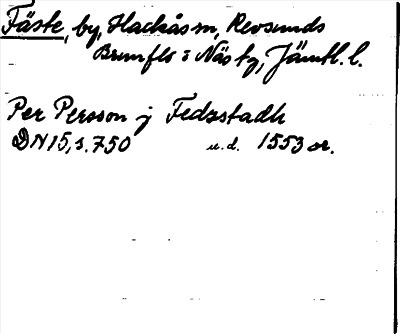 Fäste, by, Hackås sn, Revsunds
Brunflo o Näs tg, Jämtl. l.
Per Persson j Fedzstadh
DN 15, s. 750 u.d. 1553 or.